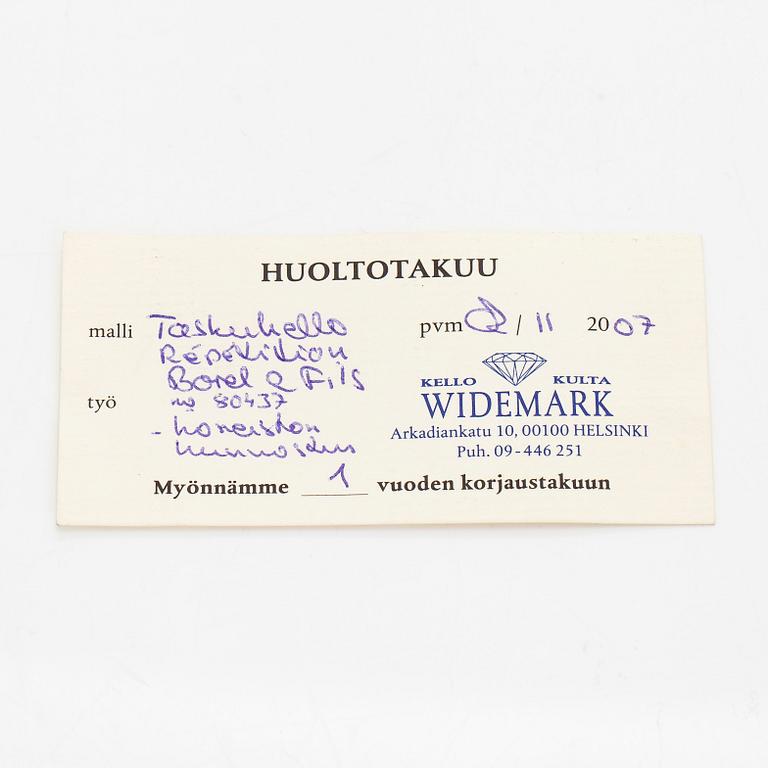 HUOLTOTAKUU
malli Taskukello pvm 2 / 11 2007
Répétition
Borel & Fils
työ no 80437
KELLO KULTA
WIDEMARK
- koneiston
kunnostus
Arkadiankatu 10, 00100 HELSINKI
Puh. 09-446 251
Myönnämme 1 vuoden korjaustakuun